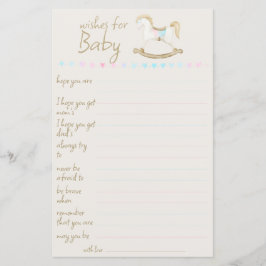 wishes for
Baby
hope you are
I hope you get
mom's
I hope you get
dad's
always try
to
never be
afraid to
be brave
when
remember
that you are
may you be
with love